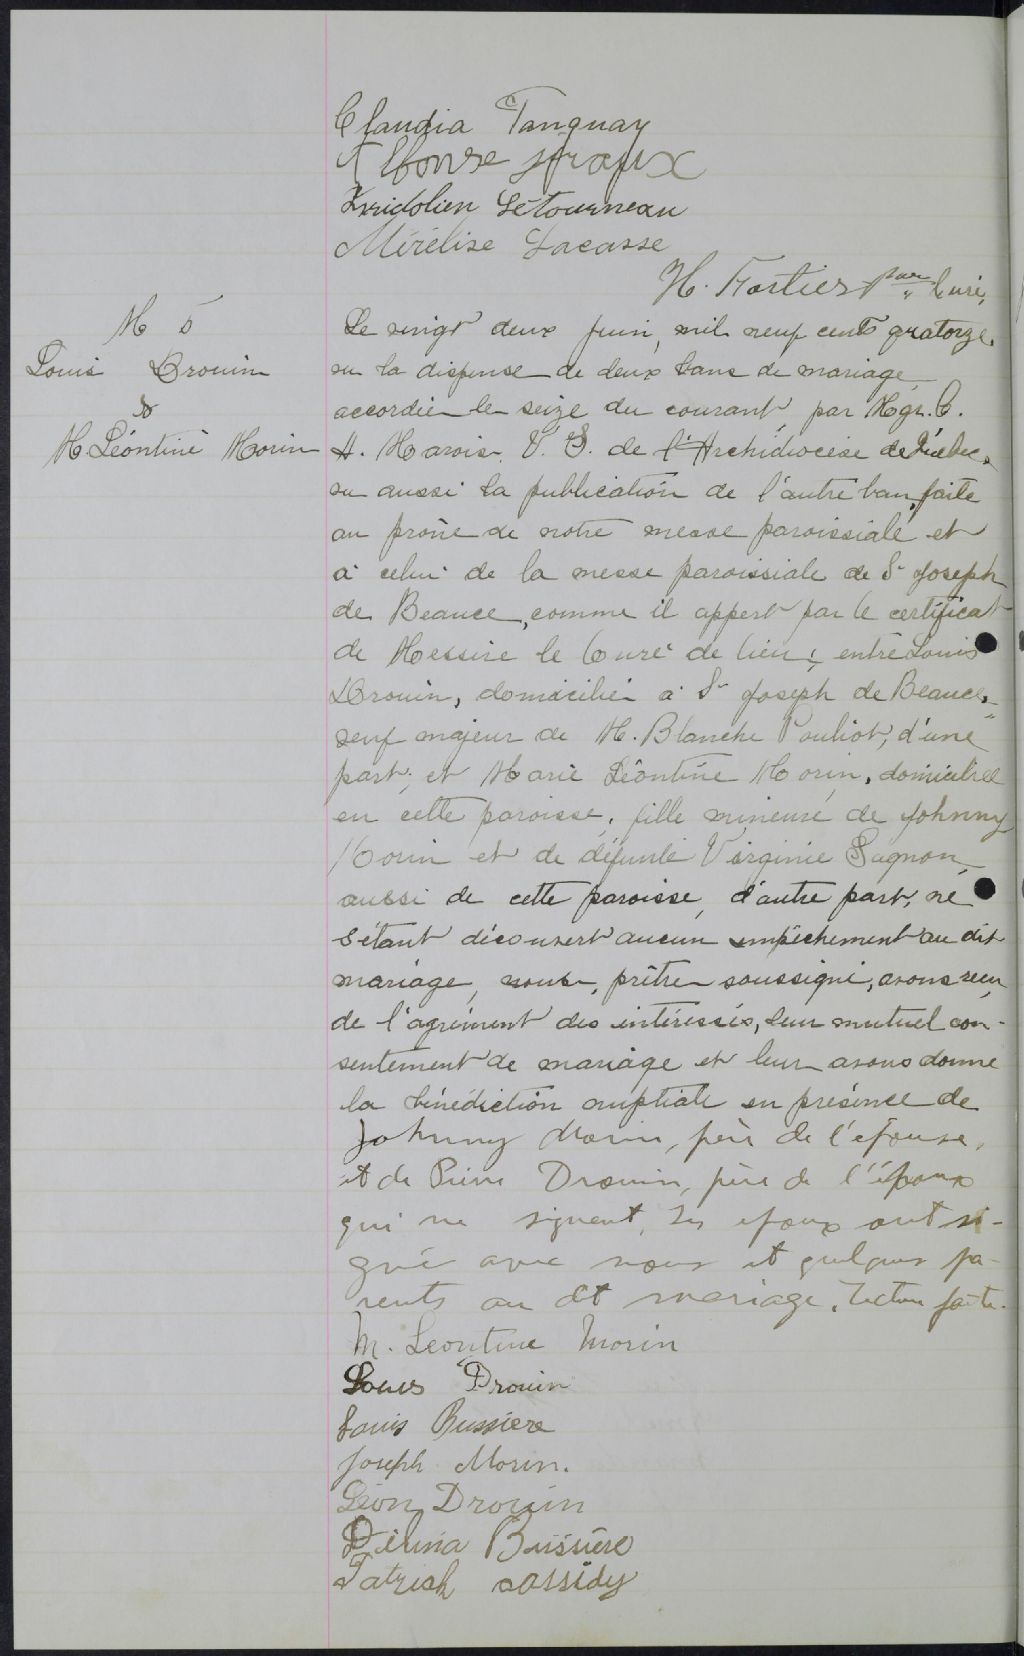 Claudia Tanguay
Alfonse
Fridolien Létourneau
Mérélise Lacasse
H. Fortier ptre Curé.
M 5
Louis Drouin
&
M. Léontine Morin
Le vingt deux juin, mil neuf cent quatorze,
vu la dispense de deux bans de mariage
accordée le seize du courant par Mgr. C.
A. Marois V. G. de l'Archidiocèse de Québec,
vu aussi la publication de l'autre ban, faite
au prône de notre messe paroissiale et
à celui de la messe paroissiale de St Joseph
de Beauce, comme il appert par le certificat
de Messire le Curé de lieu; entre Louis
Drouin, domicilié à St Joseph de Beauce,
veuf majeur de M. Blanche Pouliot, d'une
part; et Marie Léontine Morin, domiciliée
en cette paroisse, fille mineure de Johnny
Morin et de défunte Virginie Gagnon
aussi de cette paroisse, d'autre part; ne
s'étant découvert aucun empêchement au dit
mariage, nous, prêtre soussigné, avons reçu,
de l'agrément des intéressés, leur mutuel con-
sentement de mariage et leur avons donné
la bénédiction nuptiale en présence de
Johnny Morin, père de l'épouse,
et de Prime Drouin, père de l'époux
qui ne signent, Les époux ont si-
gné avec nous et quelques pa-
rents au dit mariage. Lecture faite.
M. Leontine Morin
Louis Drouin
Louis Bussiere
Joseph Morin.
Léon Drouin
Délina Bussière
Patrick Cassidy